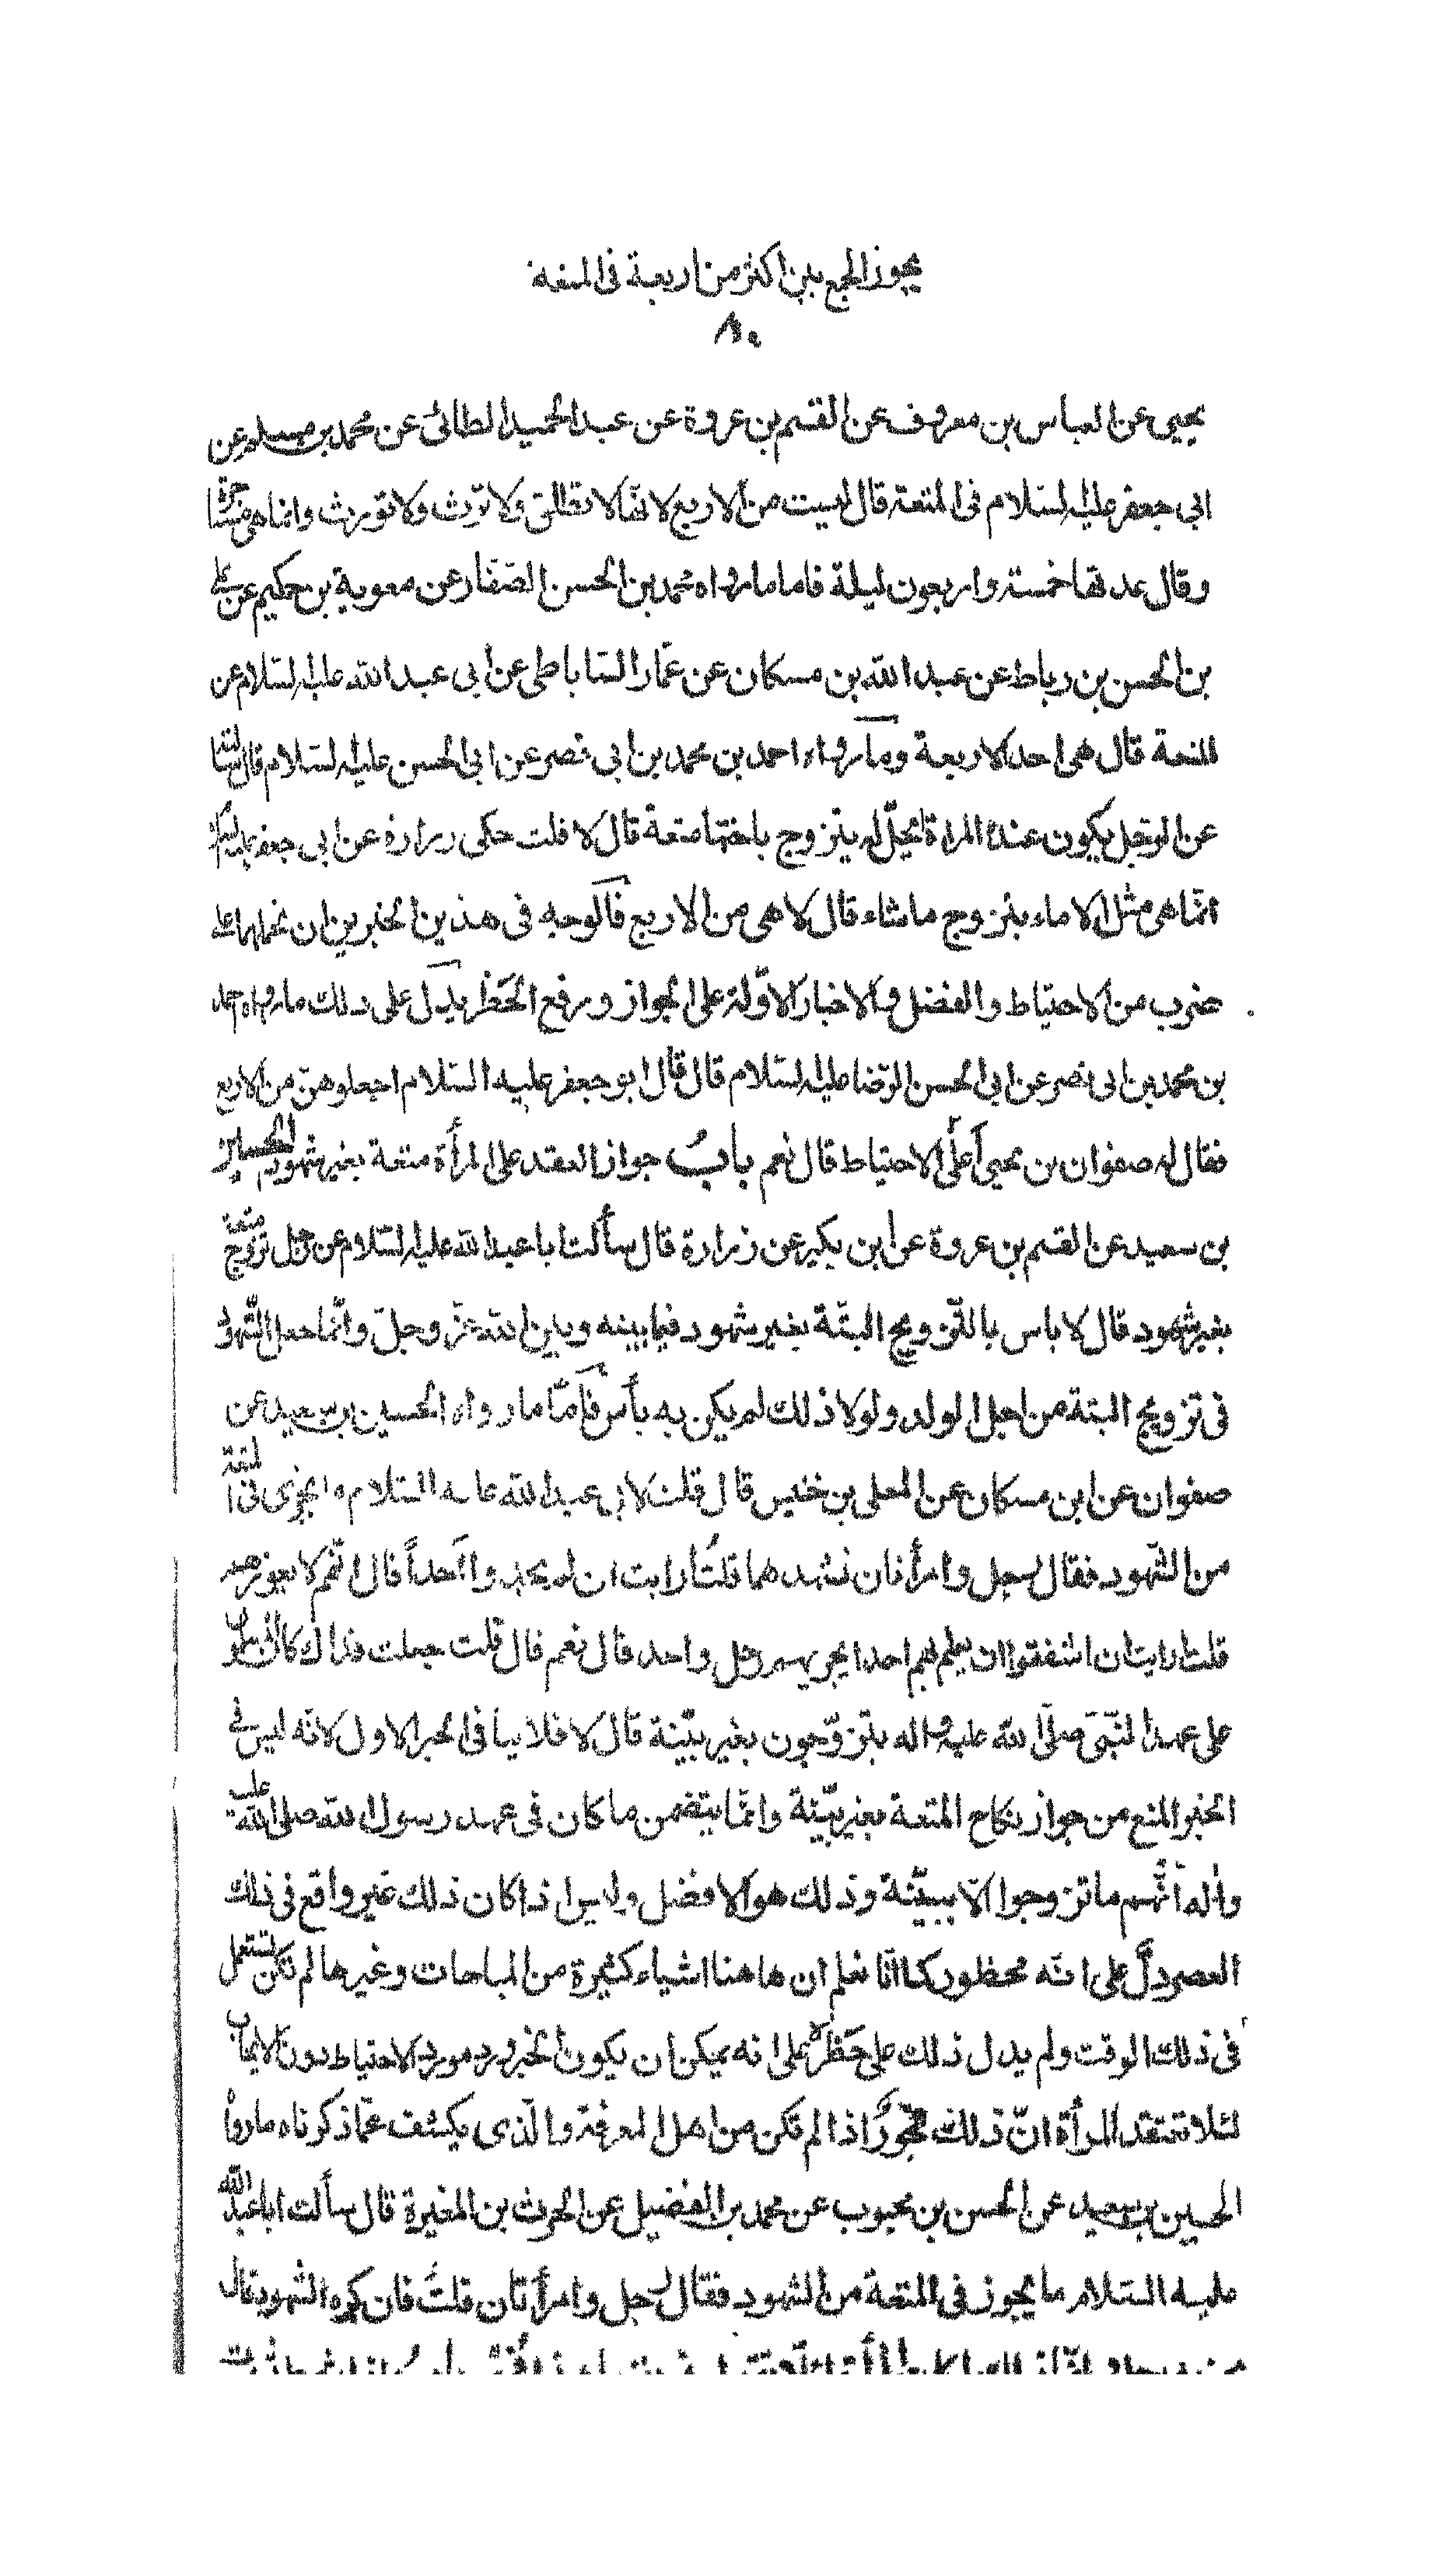 يجوز الجمع بين اكثر من اربعة فى المتعة
٨٥
يحيى عن العباس بن معروف عن القسم بن عروة عن عبد الحميد الطائى عن محمد بن مسلم عن
ابى جعفر عليه السلام فى المتعة قال ليست من الاربع لانها لا تطلق ولا ترث ولا تورث وانما هى مستأجرة
وقال عدتها خمسة واربعون ليلة فاما ما رواه محمد بن الحسن الصفار عن معوية بن حكيم عن على
بن الحسن بن رباط عن عبد الله بن مسكان عن عمار الساباطى عن ابى عبد الله عليه السلام عن
المتعة قال هى احد الاربعة وما رواه احمد بن محمد بن ابى نصر عن ابى الحسن عليه السلام قال سألته
عن الرجل يكون عنده المراة ايحل له يتزوج باختها متعة قال لا قلت حكى زرارة عن ابى جعفر عليه السلام
انما هى مثل الاماء يتزوج ما شاء قال لا هى من الاربع فالوجه فى هذين الخبرين ان نحملهما على
ضرب من الاحتياط والفضل والاخبار الاولة على الجواز ورفع الحظر يدل على ذلك ما رواه احمد
بن محمد بن ابى نصر عن ابى الحسن الرضا عليه السلام قال قال ابو جعفر عليه السلام اجعلوهن من الاربع
فقال له صفوان بن يحيى أعلى الاحتياط قال نعم باب جواز العقد على المرأة متعة بغير شهود الحسين
بن سعيد عن القسم بن عروة عن ابن بكير عن زرارة قال سألت ابا عبد الله عليه السلام عن رجل تزوج متعة
بغير شهود قال لا باس بالتزويج البتة بغير شهود فيما بينه وبين الله عز وجل وانما جعل الشهود
فى تزويج البتة من اجل الولد ولولا ذلك لم يكن به بأس فاما ما رواه الحسين بن سعيد عن
صفوان عن ابن مسكان عن المعلى بن خنيس قال قلت لابى عبد الله عليه السلام ما يجزى فى المتعة
من الشهود فقال رجل وامرأتان نشهدهما قلت أرايت ان لم يجد واحداً قال انهم لا يعوزهم
قلت ارايت ان اشفقوا ان يعلم بهم احد ايجزيهم رجل واحد قال نعم قال قلت جعلت فداك كان المسلمون
على عهد النبى صلى الله عليه واله يتزوجون بغير بينة قال لا فلا ينافى الخبر الاول لانه ليس فى
الخبر المنع من جواز نكاح المتعة بغير بينة وانما يتضمن ما كان فى عهد رسول الله صلى الله عليه
واله انهم ما تزوجوا الا ببينة وذلك هو الافضل وليس اذا كان ذلك غير واقع فى ذلك
العصر دل على انه محظور كما انا نعلم ان هاهنا اشياء كثيرة من المباحات وغيرها لم تكن تستعمل
فى ذلك الوقت ولم يدل ذلك على حظره على انه يمكن ان يكون الخبر ورد مورد الاحتياط دون الايجاب
لئلا تعتقد المرأة انّ ذلك فجور اذا لم تكن من اهل المعرفة والّذى يكشف عمّا ذكرناه ما رواه
الحسين بن سعيد عن الحسن بن محبوب عن محمد بن الفضيل عن الحرث بن المغيرة قال سألت ابا عبد الله
عليه السلام ما يجوز فى المتعة من الشهود فقال رجل وامرأتان قلت فان كره الشهود قال